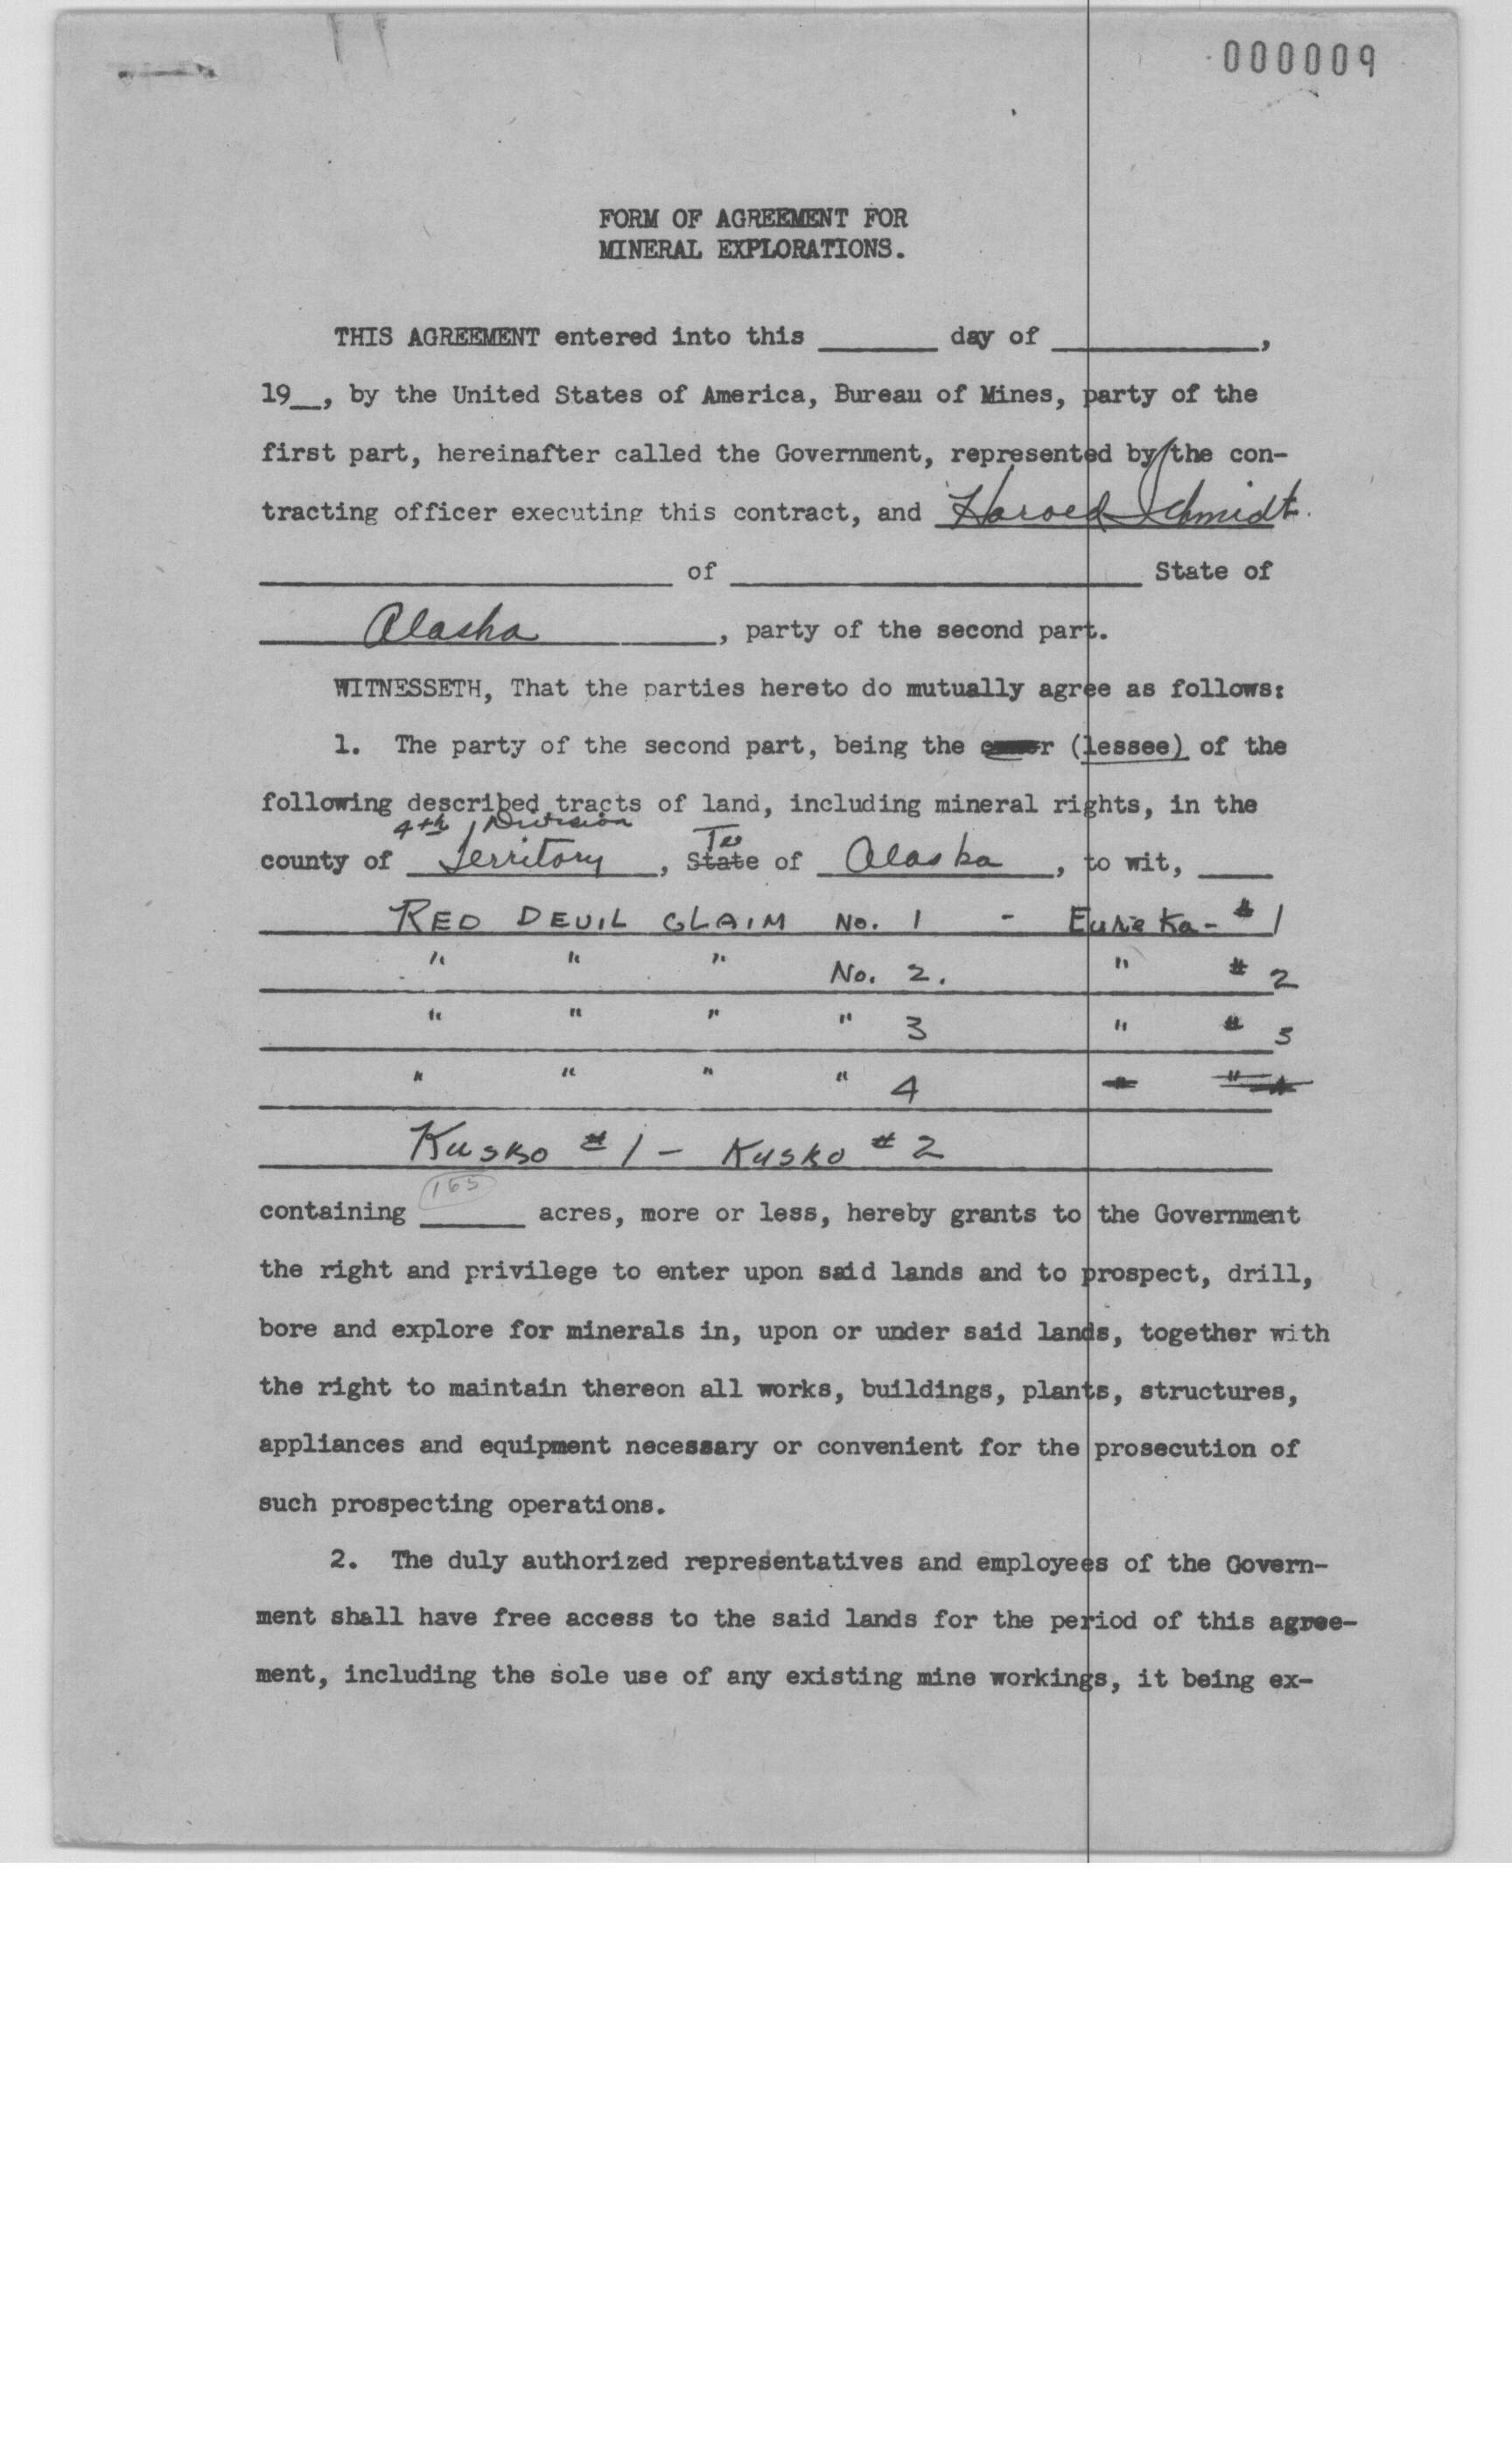 000009
FORM OF AGREEMENT FOR
MINERAL EXPLORATIONS.
THIS AGREEMENT entered into this ________ day of ______________,
19__, by the United States of America, Bureau of Mines, party of the
first part, hereinafter called the Government, represented by the con-
tracting officer executing this contract, and Harold Schmidt.
____________________________ of ____________________________ State of
Alaska, party of the second part.
WITNESSETH, That the parties hereto do mutually agree as follows:
1. The party of the second part, being the owner (lessee) of the
following described tracts of land, including mineral rights, in the
4th Division Te
county of Territory, State of Alaska, to wit, _____
RED DEVIL CLAIM No. 1 - Eureka - #1
" " " No. 2. " # 2
" " " " 3 " # 3
" " " " 4 " "
Kusko #1 - Kusko #2
165
containing _______ acres, more or less, hereby grants to the Government
the right and privilege to enter upon said lands and to prospect, drill,
bore and explore for minerals in, upon or under said lands, together with
the right to maintain thereon all works, buildings, plants, structures,
appliances and equipment necessary or convenient for the prosecution of
such prospecting operations.
2. The duly authorized representatives and employees of the Govern-
ment shall have free access to the said lands for the period of this agree-
ment, including the sole use of any existing mine workings, it being ex-